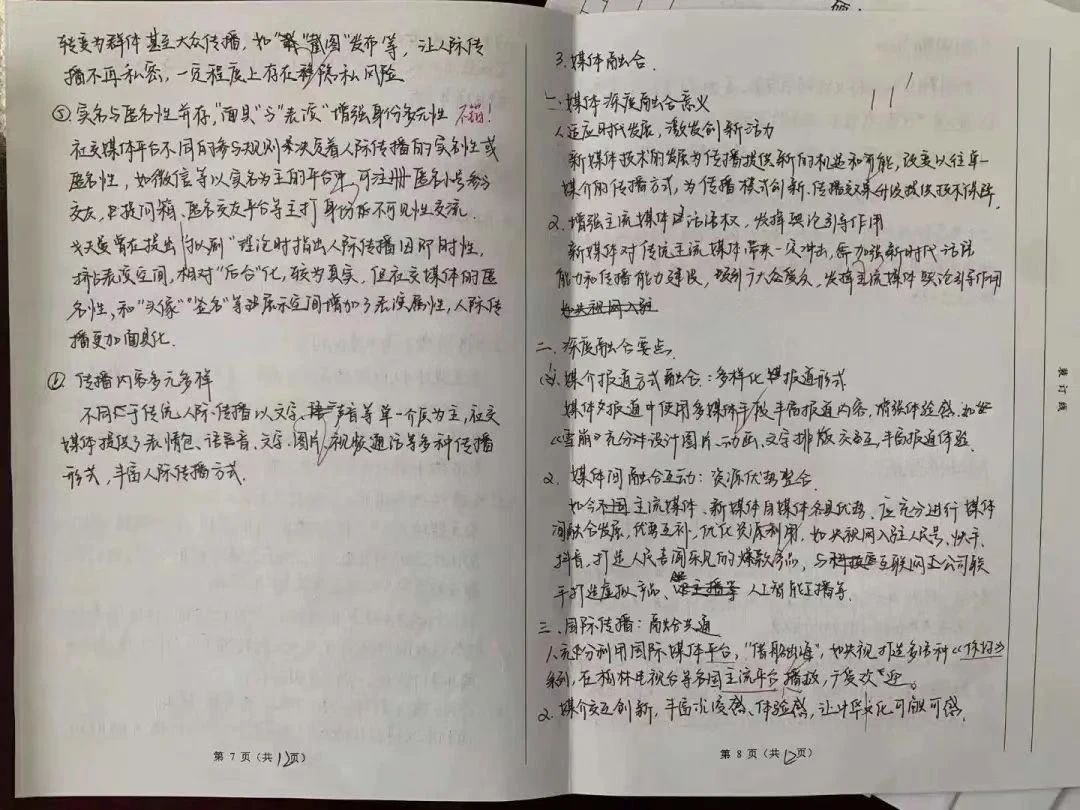 转变为群体甚至大众传播,如"群""截图"发布等,让人际传
播不再私密,一定程度上存在隐私风险
⑤ 实名与匿名性并存,"面具"与"表演"增强身份多元性 不错!
社交媒体平台不同的参与规则决定着人际传播的实名性或
匿名性,如微信等以实名为主的平台中,可注册匿名小号参与
交友,且提问箱、匿名交友平台等主打身份后不可见性交流.
戈夫曼曾在提出"拟剧"理论时指出人际传播因即时性,
挤占表演空间,相对"后台"化,较为真实,但社交媒体的匿
名性,和"头像""签名"等展示空间增加了表演属性,人际传
播更加面具化.
⑥ 传播内容多元多样
不同于传统人际传播以文字、声音等单一介质为主,社交
媒体提供了表情包、语音、文字、图片、视频通话等多种传播
形式,丰富人际传播方式.
第 7 页(共 12 页)
3. 媒体融合.
11
一、媒体深度融合意义
1. 适应时代发展,激发创新活力
新媒体技术的发展为传播提供新的机遇和可能,改变以往单一
媒介的传播方式,为传播模式创新、传播提供技术保障.
2. 增强主流媒体话语权,发挥舆论引导作用
新媒体对传统主流媒体带来一定冲击,需加强新时代话语
能力和传播能力建设,吸引广大群众,发挥主流媒体舆论引导作用
如央视网入驻
二、深度融合要点.
1. 媒介报道方式融合:多样化报道形式
媒体报道中使用多媒体手段丰富报道内容,增强体验感.如
《雪崩》充分设计图片、动画、文字排版交互,丰富报道体验.
2. 媒体间融合互动:资源优势整合.
如今不同主流媒体、新媒体自媒体各具优势、应充分进行媒体
间融合发展,优势互补,优化资源利用,如央视网入驻人民号、快手、
抖音,打造人民喜闻乐见的爆款产品,与科技互联网公司联
手打造虚拟产品、主播等 人工智能主播等.
三、国际传播:融合共通
1. 充分利用国际媒体平台,"借船出海",如央视打造多语种《你好》
系列,在柏林电视台等多国主流平台播放,广受欢迎。
2. 媒介交互创新,丰富沉浸感、体验感,让中华文化可触可感.
第 8 页(共 12 页)
装 订 线